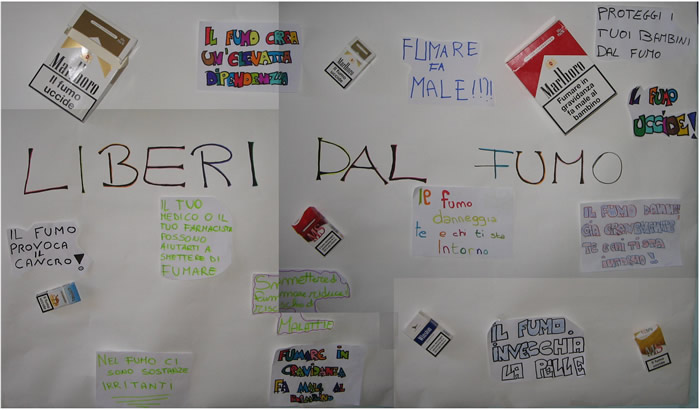 Marlboro
Il fumo
uccide
IL FUMO CREA
UN'ELEVATTA
DIPENDENZA
FUMARE
FA
MALE!!!!
Marlboro
Fumare in
gravidanza
fa male al
bambino
PROTEGGI I
TUOI BAMBINI
DAL FUMO
IL FUMO
UCCIDE!
LIBERI DAL FUMO
IL FUMO
PROVOCA
IL
CANCRO!
IL TUO
MEDICO O IL
TUO FARMACISTA
POSSONO
AIUTARTI A
SMETTERE DI
FUMARE
MS
Il fumo
danneggia
te e chi ti sta
Intorno
IL FUMO DANNEG
GIA GRAVEMENTE
TE E CHI TI STA
INTORNO!
Smettere di
fumare riduce il
rischio di
MALATTIE
NEL FUMO CI
SONO SOSTANZE
IRRITANTI
FUMARE IN
GRAVIDANZA
FA MALE AL
BAMBINO
IL FUMO
INVECCHIA
LA PELLE